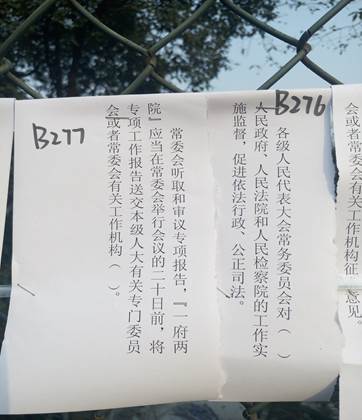 会或者常委会有关工作机构征
意见。
B276
各级人民代表大会常务委员会对（ ）
人民政府、人民法院和人民检察院的工作实
施监督，促进依法行政、公正司法。
B277
常委会听取和审议专项报告，『一府两
院』应当在常委会举行会议的二十日前，将
专项工作报告送交本级人大有关专门委员
会或者常委会有关工作机构（ ）。